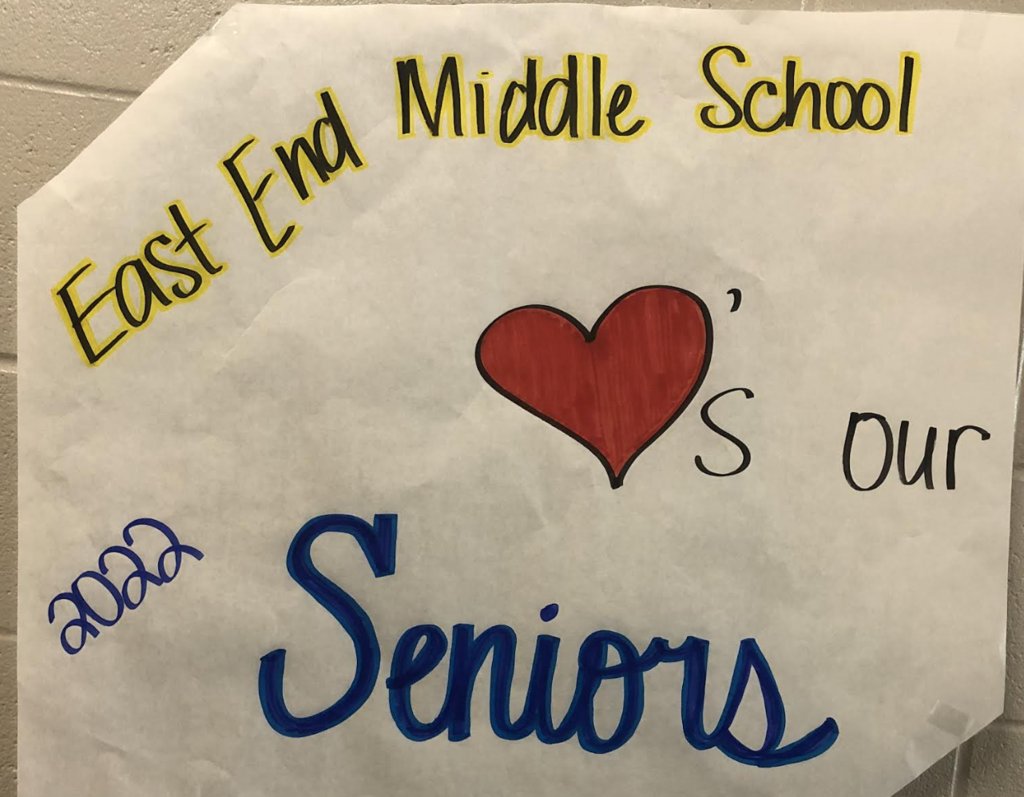 East End Middle School
's our
2022
Seniors